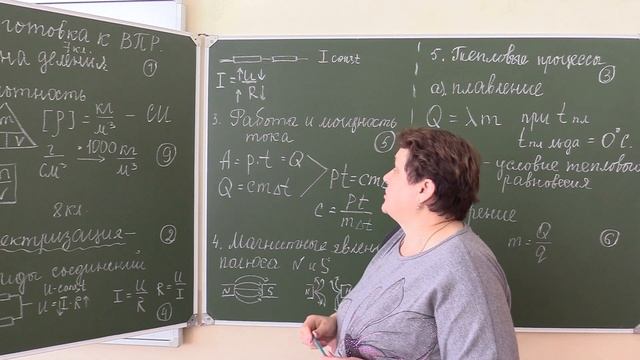 готовка к ВПР.
7кл.
на деления
①
отность
[ρ] = кг/м³ - СИ
m
V
г/см³ ×1000→ кг/м³
⑨
8кл.
ектризация-
②
иды соединений
u-const
u=I·R↑
I = u/R
R = u/I
④
I const
I = ↑u↓/↑R↓
3. Работа и мощность
тока
⑤
A = p·t = Q
Q = cm∆t
pt = cm
c = pt/m∆t
4. Магнитные явлен
полюса N и S
N S
N
5. Тепловые процессы
③
а) плавление
Q = λm при tпл
tпл льда = 0°C.
- условие теплового
равновесия
рение
m = Q/q
⑥